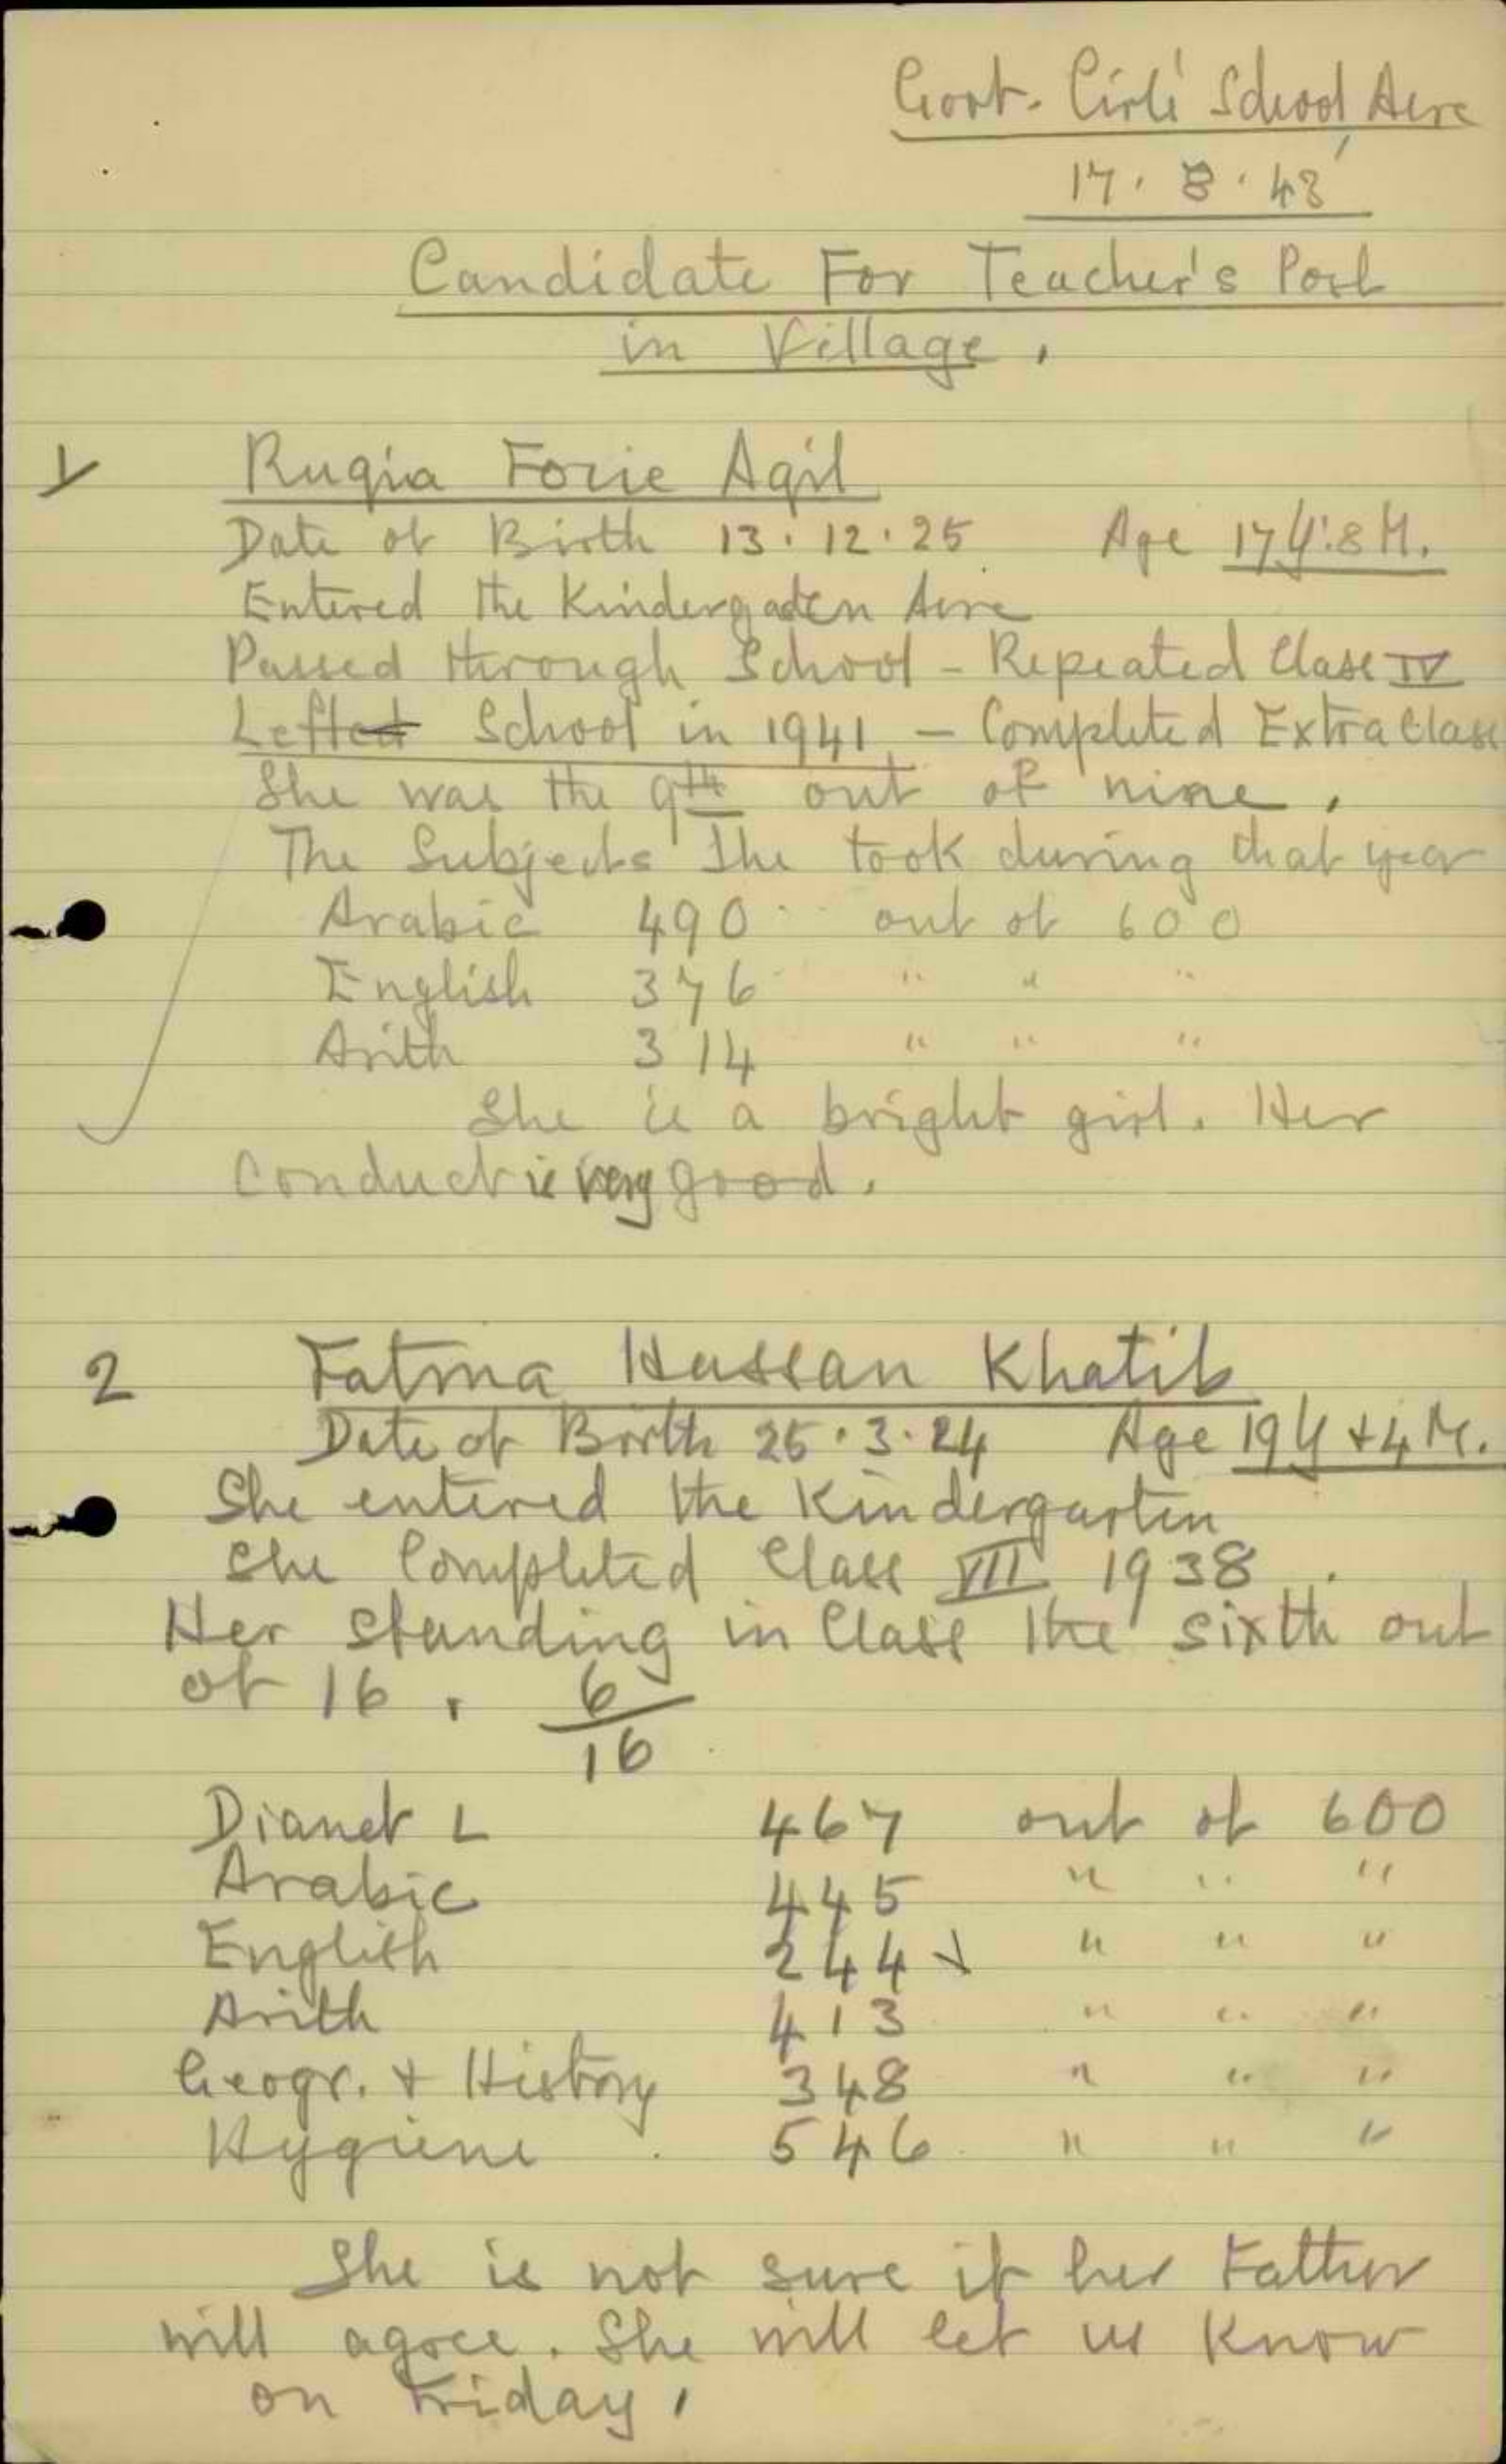 Govt. Girls' School, Acre
17. 8. 43
Candidate For Teacher's Post
in Village.
1
Ruqia Fozie Aqil
Date of Birth 13.12.25 Age 17Y.8M.
Entered the Kindergaten Acre
Passed through School - Repeated Class IV
Lefted School in 1941 - Completed Extra Class
She was the 9th out of nine.
The Subjects She took during that year
Arabic 490 out of 600
English 376 " " "
Arith 314 " " "
She is a bright girl. Her
conduct is very good.
2
Fatma Hassan Khatib
Date of Birth 25.3.24 Age 19Y + 4M.
She entered the Kindergarten
She Completed Class VII 1938.
Her standing in Class the sixth out
of 16. 6/16
Dianet L 467 out of 600
Arabic 445 " " "
English 244 " " "
Arith 413 " " "
Geogr. + History 348 " " "
Hygiene 546 " " "
She is not sure if her Father
will agree. She will let us Know
on Friday.